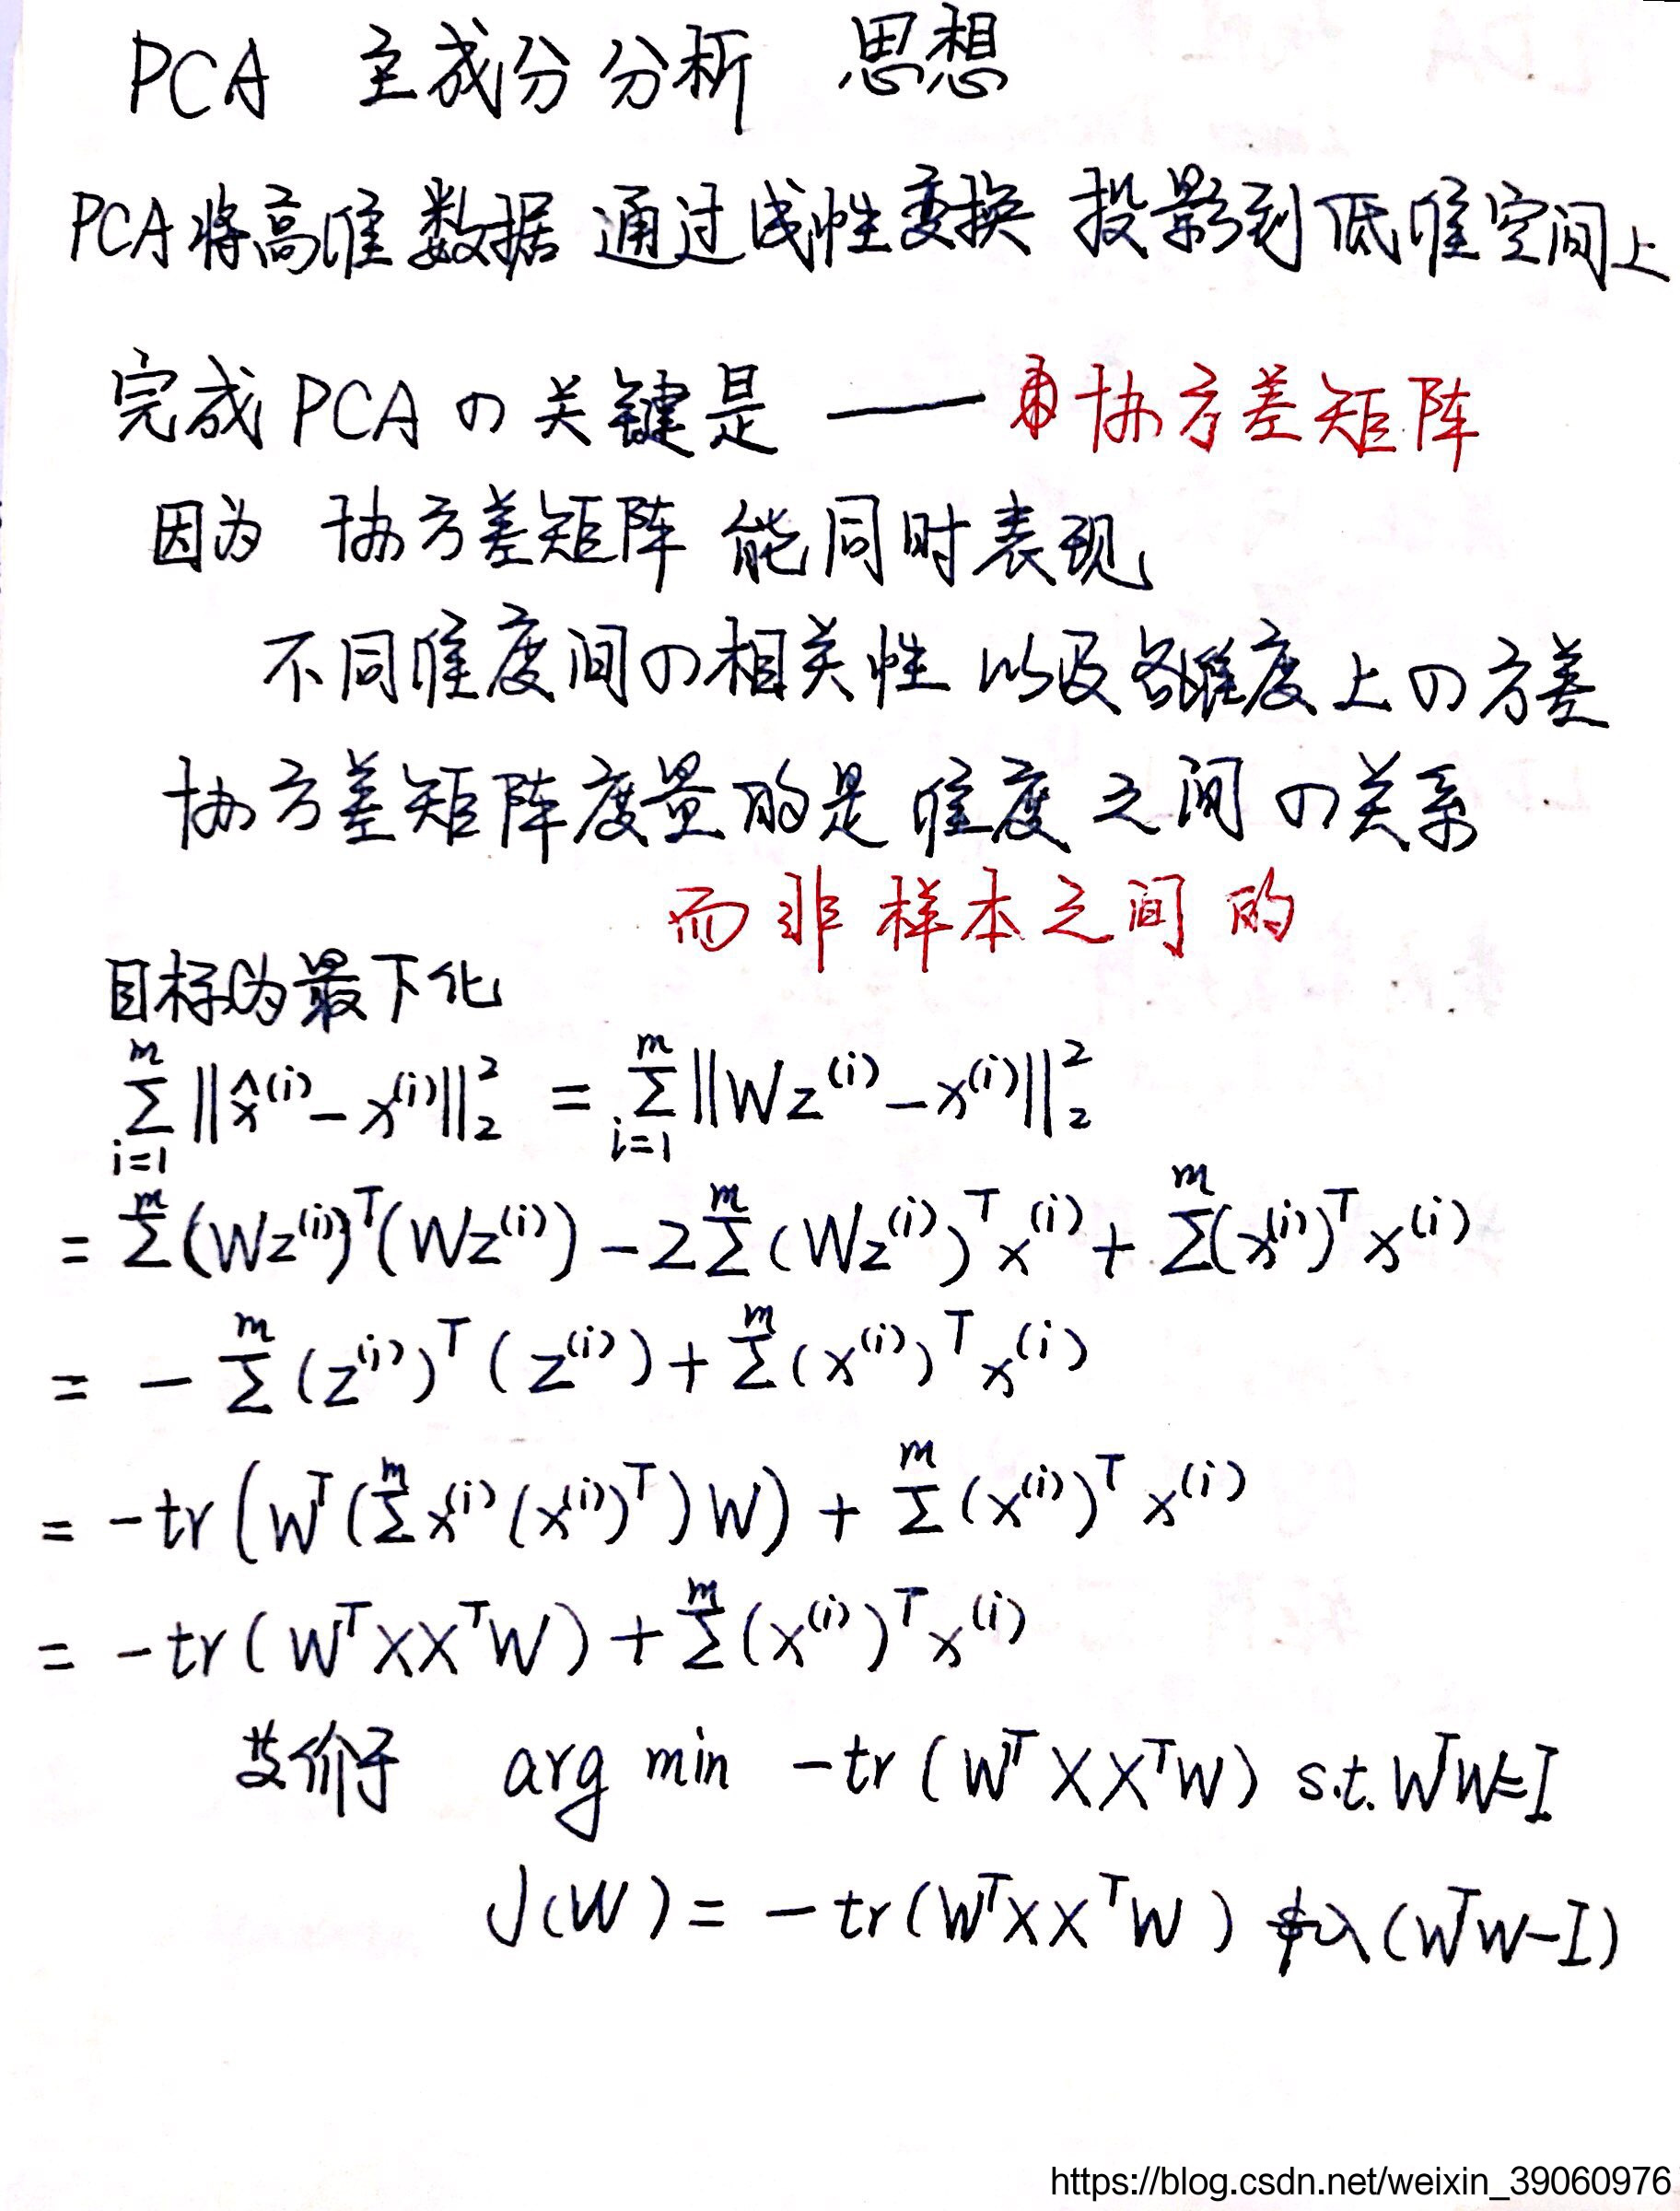 PCA 主成分分析 思想
PCA将高维数据 通过线性变换 投影到低维空间上
完成PCAの关键是 —— 协方差矩阵
因为 协方差矩阵 能同时表现
不同维度间の相关性 以及各维度上の方差
协方差矩阵度量的是 维度之间の关系
而非样本之间的
目标为最下化
∑_{i=1}^{m} ||x̂^{(i)} - x^{(i)}||_2^2 = ∑_{i=1}^{m} ||Wz^{(i)} - x^{(i)}||_2^2
= ∑^m (Wz^{(i)})^T (Wz^{(i)}) - 2∑^m (Wz^{(i)})^T x^{(i)} + ∑^m (x^{(i)})^T x^{(i)}
= - ∑^m (z^{(i)})^T (z^{(i)}) + ∑^m (x^{(i)})^T x^{(i)}
= -tr(W^T (∑^m x^{(i)} (x^{(i)})^T) W) + ∑^m (x^{(i)})^T x^{(i)}
= -tr(W^T XX^T W) + ∑^m (x^{(i)})^T x^{(i)}
等价于 arg min -tr(W^T XX^T W) s.t. W^T W = I
J(W) = -tr(W^T XX^T W) + λ(W^T W - I)
https://blog.csdn.net/weixin_39060976